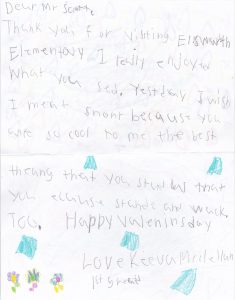 Dear Mr
Thank you for visiting Elsworth
Elementary I really enjoyed
What you sed. Yestday I wish
I meant snont because you
are so cool to me the best
theang that you stund
you stands and walk.
Too. Happy Valeninsday
Love Keeva
1st grade